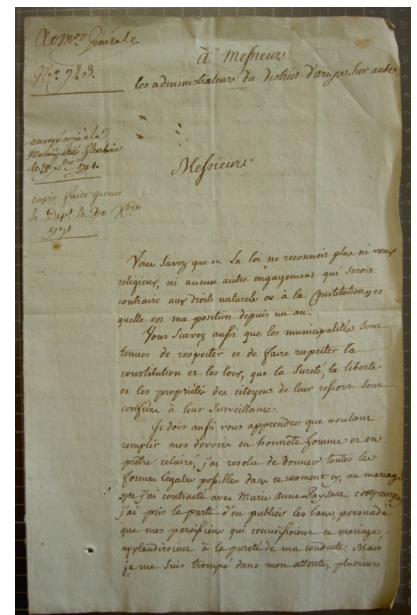 Générale
No. 723.
à Messieurs
les administrateurs du district d'arcys sur aube
envoyé copie à la
Municipalité
copie faite pour
le Dept. le 20 Xbre
1791
Messieurs
Vous Savez que la loi ne reconnoit plus ni vœux
religieux, ni aucun autre engagement qui seroit
contraire aux droits naturels ou à la Constitution,
quelle est ma position depuis un an.
Vous Scavez aussi que les municipalités sont
tenues de respecter et de faire respecter la
constitution et les lois, que la Sureté, la liberté
et les propriétés des citoyens de leur ressort sont
confiées à leur Surveillance.
Je dois aussi vous apprendre que voulant
remplir mes devoirs en honnête homme et en
prêtre, j'ai resolu de donner toutes les
formes legales possibles dans ce moment cy, au mariage
que j'ai contracté avec Marie Anne
j'ai pris le parti d'en publier les bans, persuadé
que mes paroissiens qui connoissoient ce mariage,
applaudiroient à la pureté de ma conduite, Mais
je me suis trompé dans mon attente, plusieurs